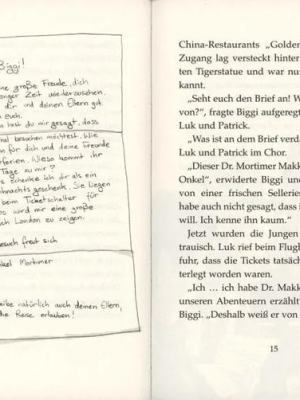 Biggi!
große Freude, dich
langer Zeit wiederzusehen.
dir und deinen Eltern gut
euch.
du mir gesagt, dass
mal besuchen möchtest. Wie
für dich und deine Freunde
ferien. Wieso kommt ihr
Tage zu mir?
schenke ich dir als ein
hnachtsgeschenk. Sie liegen
Ticketschalter für
wird mir eine große
London zu zeigen.
esuch freut sich
nkel Mortimer
natürlich auch deinen Eltern,
Reise erlauben!
China-Restaurants „Golden
Zugang lag versteckt hinter
ten Tigerstatue und war nu
kannt.
„Seht euch den Brief an! W
von?“, fragte Biggi aufgeregt
Luk und Patrick.
„Was ist an dem Brief verdä
Luk und Patrick im Chor.
„Dieser Dr. Mortimer Makk
Onkel“, erwiderte Biggi und
von einer frischen Selleries
habe auch nicht gesagt, dass i
will. Ich kenne ihn kaum.“
Jetzt wurden die Jungen
trauisch. Luk rief beim Flugh
fuhr, dass die Tickets tatsäch
terlegt worden waren.
„Ich ... ich habe Dr. Makk
unseren Abenteuern erzählt
Biggi. „Deshalb weiß er von
15